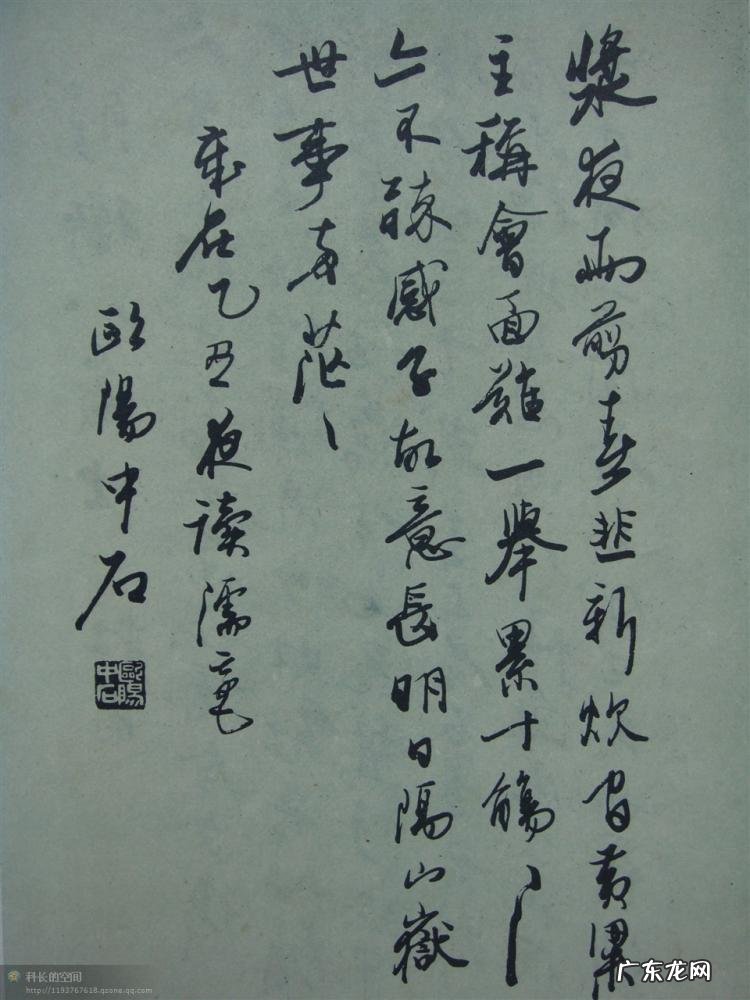 漿夜雨翦春韭新炊間黃粱
主稱會面難一舉累十觴〻〻
亦不醉感子故意長明日隔山嶽
世事兩茫〻
歲在乙丑夜读濡毫
歐陽中石
歐陽中石
科长的空间
http://1193767618.qzone.qq.com
广东龙网